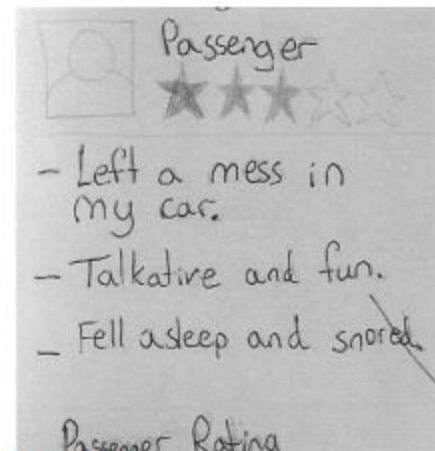 Passenger
- Left a mess in
my car.
- Talkative and fun.
- Fell asleep and snored.
Passenger Rating